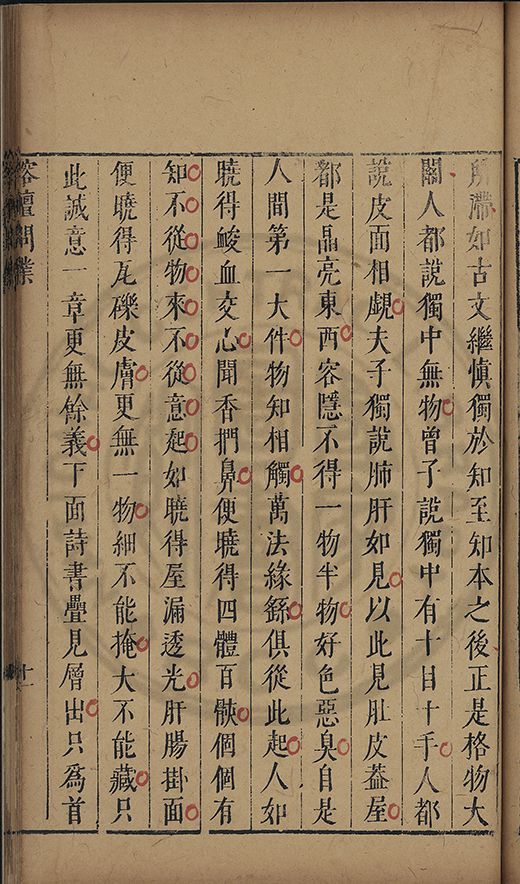 所滯如古文繼慎獨於知至知本之後正是格物大
關人都說獨中無物曾子說獨中有十目十手人都
說皮面相覷夫子獨說肺肝如見以此見肚皮蓋屋
都是晶亮東西容隱不得一物半物好色惡臭自是
人間第一大件物知相觸萬法緣繇俱從此起人如
曉得皴血交心聞香捫鼻便曉得四體百骸個個有
知不從物來不從意起如曉得屋漏透光肝腸掛面
便曉得瓦礫皮膚更無一物細不能掩大不能藏只
此誠意一章更無餘義下面詩書疊見層出只為首
榕壇問業
十一